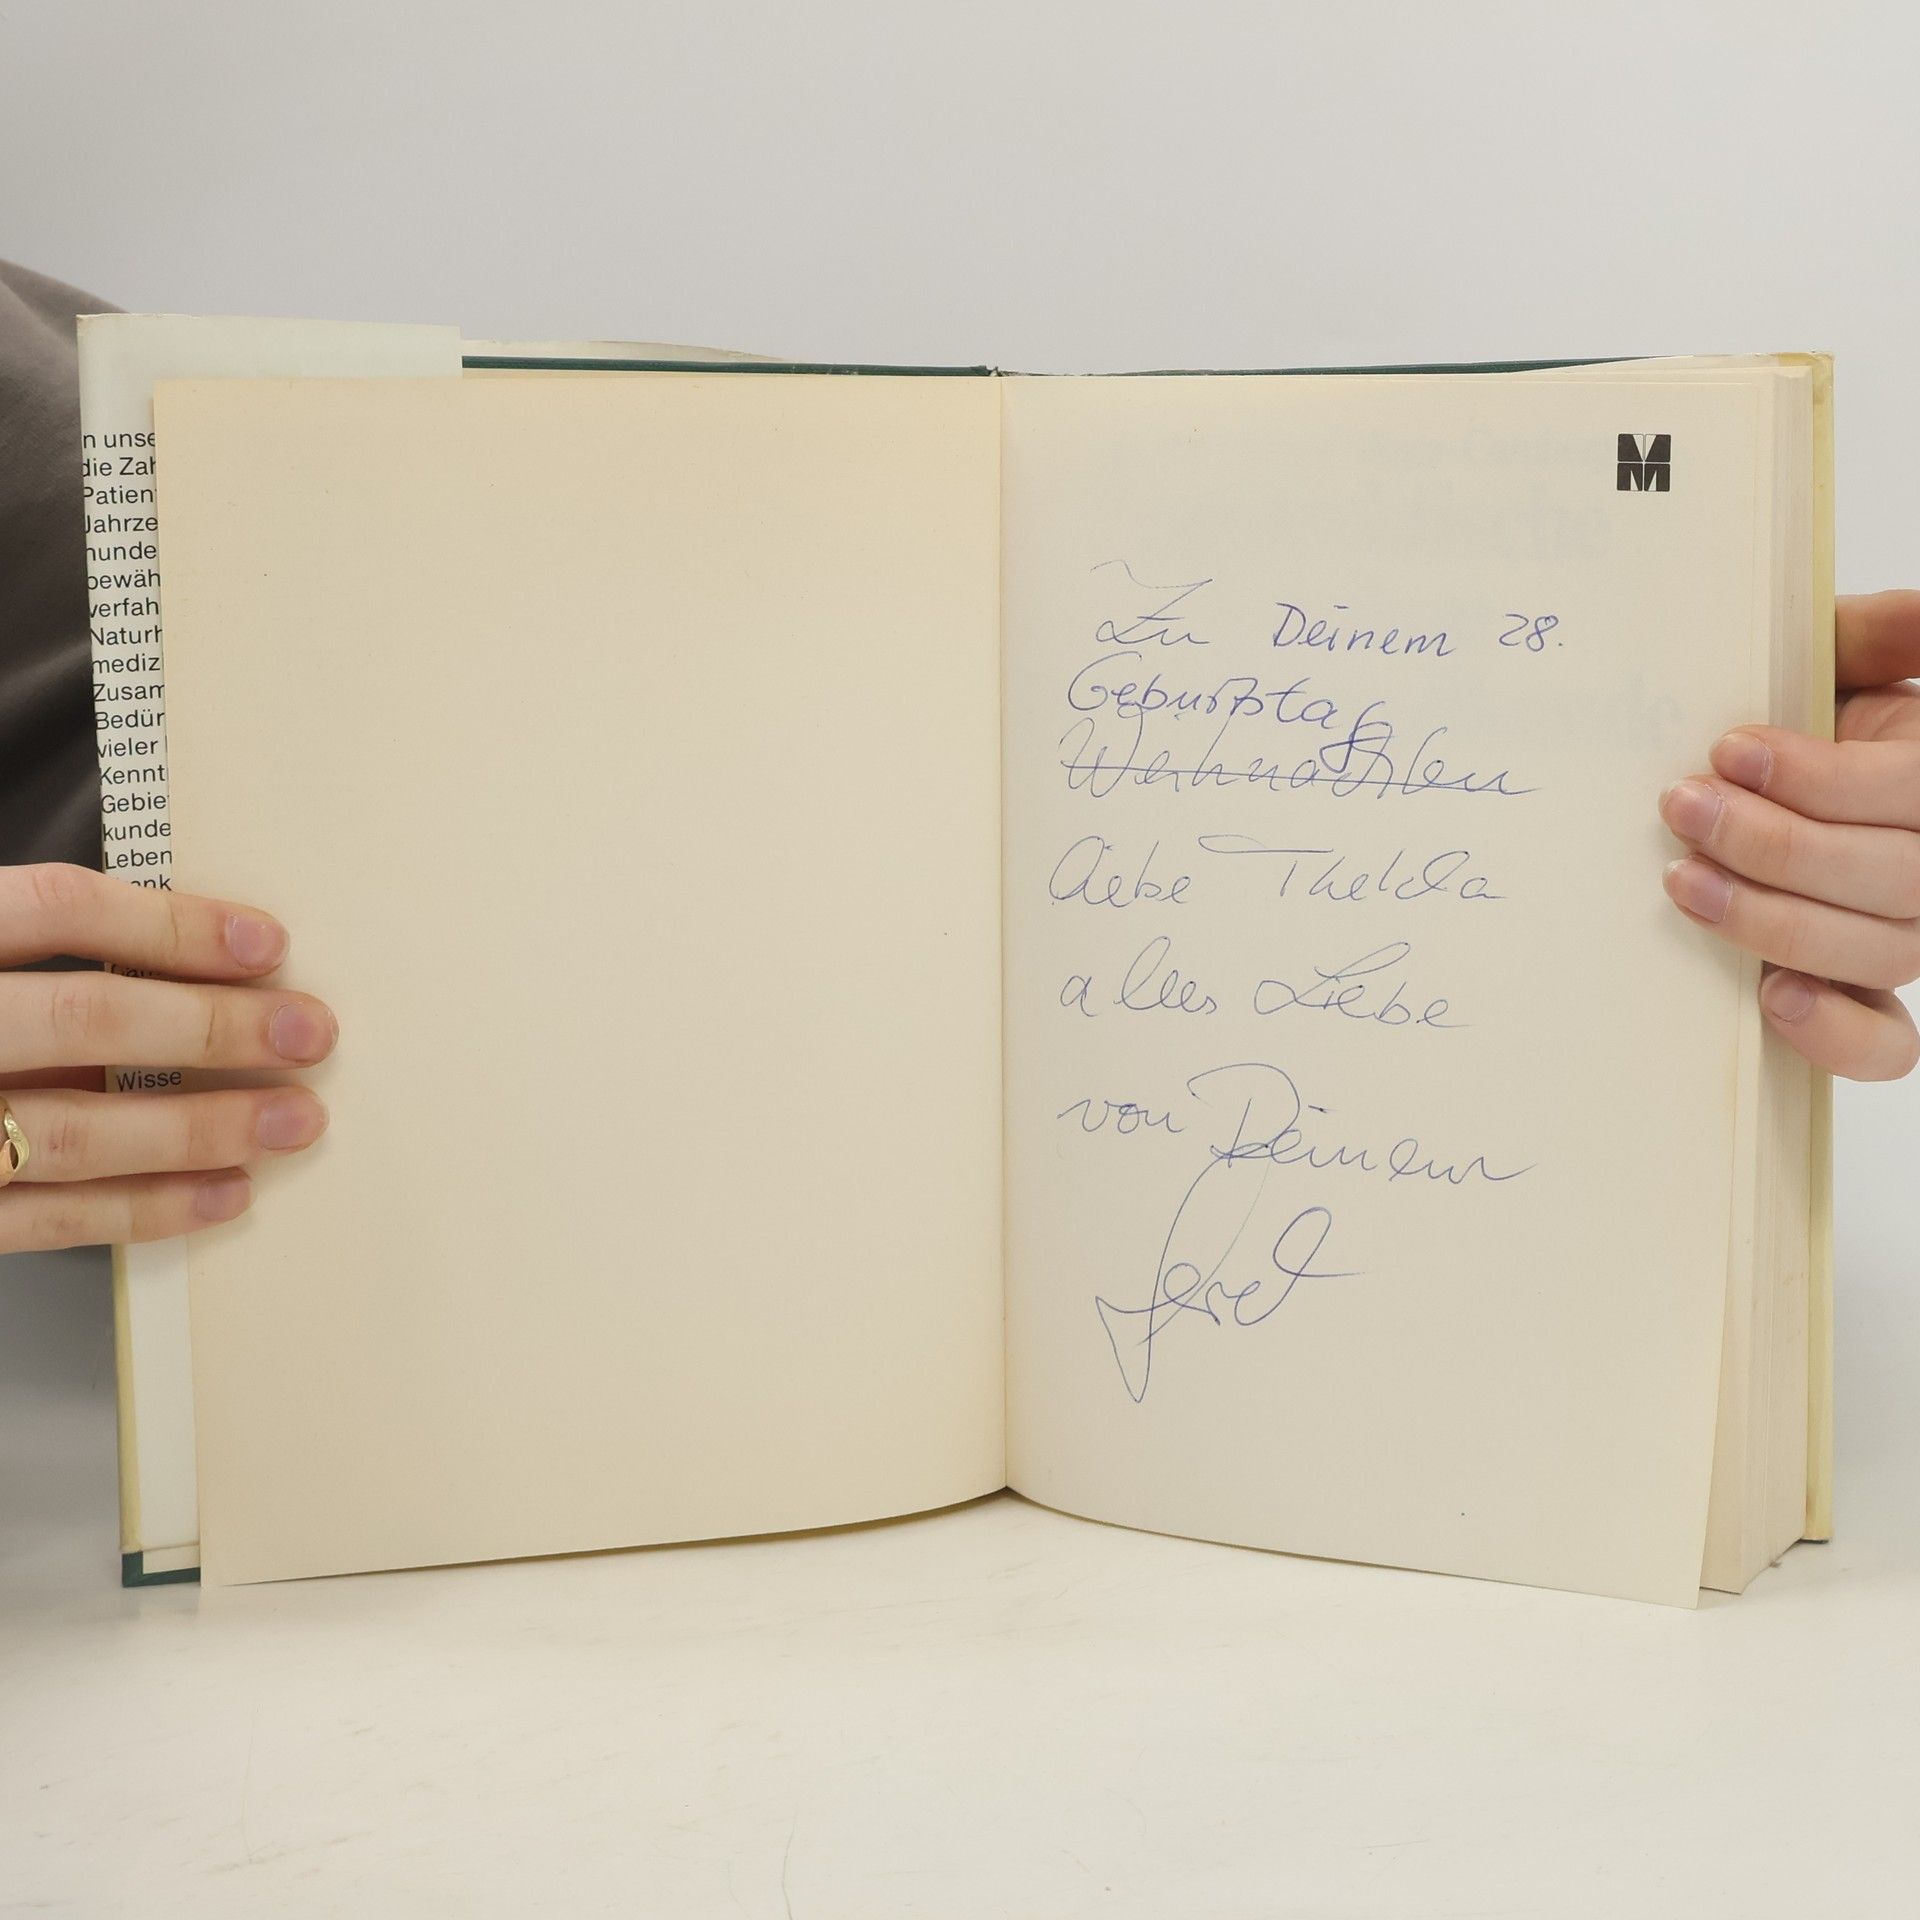 n unse
die Zah
Patien
Jahrze
hunde
bewäh
verfah
Naturh
mediz
Zusam
Bedür
vieler
Kennt
Gebie
kunde
Leben
Wisse
Zu Deinem 28.
Geburtstag
Weihnachten
liebe Thekla
alles Liebe
von Deinem